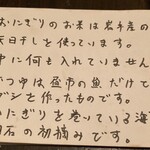 おにぎりのお米は岩手産の
天日干しを使っています。
中に何も入れていません
つゆは盛市の魚だけで
ダシを作ったものです。
にぎりを巻いている海
石の初摘みです。